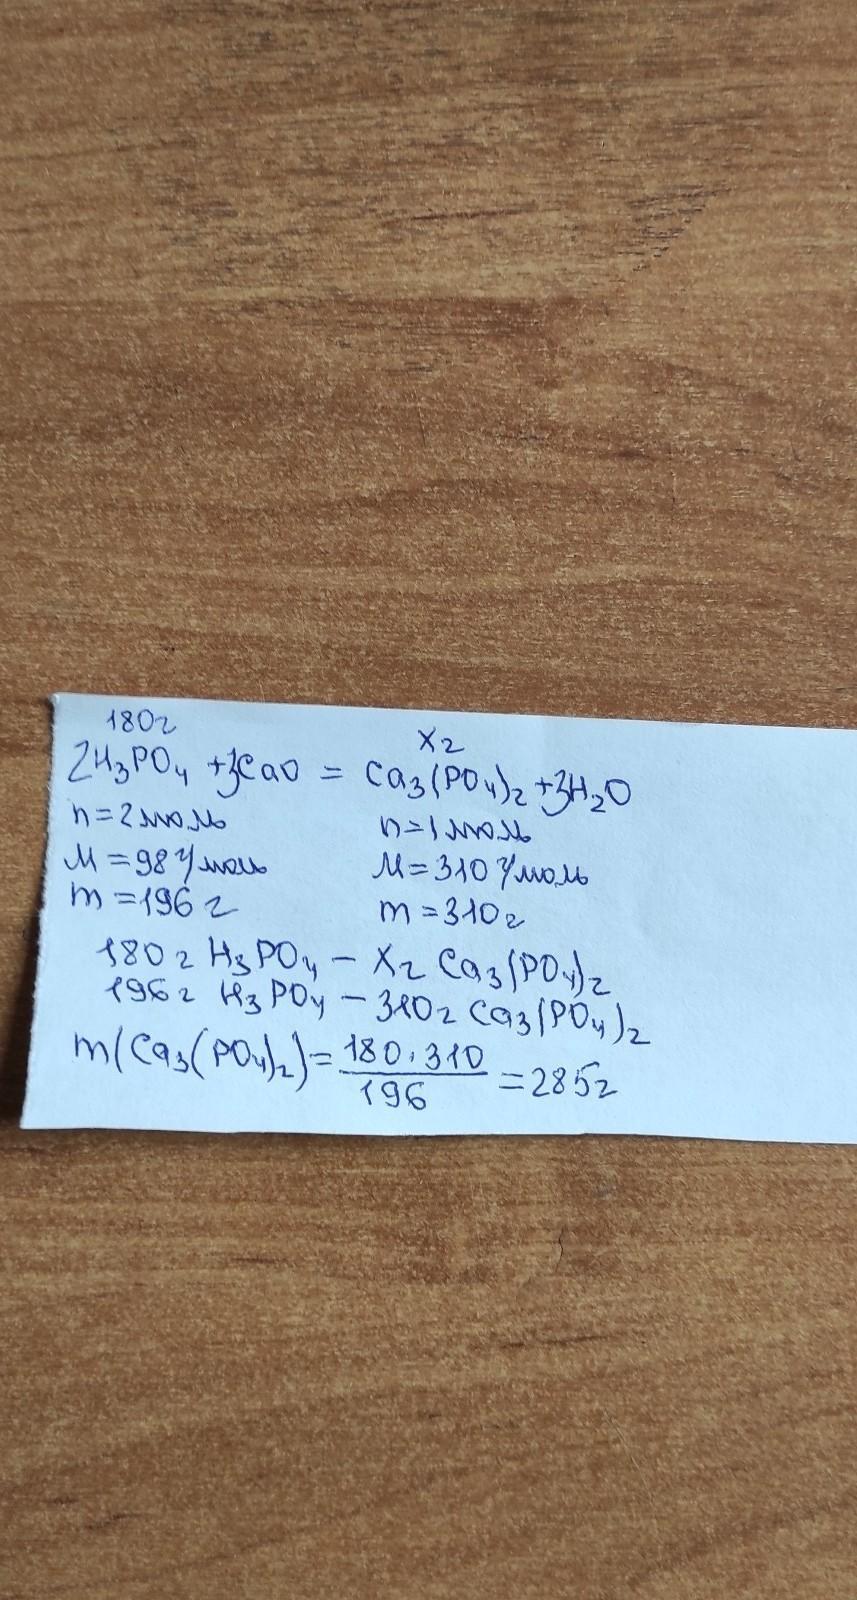 180г
xг
2H₃PO₄ + 3CaO = Ca₃(PO₄)₂ + 3H₂O
n=2моль n=1моль
M=98г/моль M=310г/моль
m=196г m=310г
180г H₃PO₄ – xг Ca₃(PO₄)₂
196г H₃PO₄ – 310г Ca₃(PO₄)₂
m(Ca₃(PO₄)₂) = 180·310 / 196 = 285г